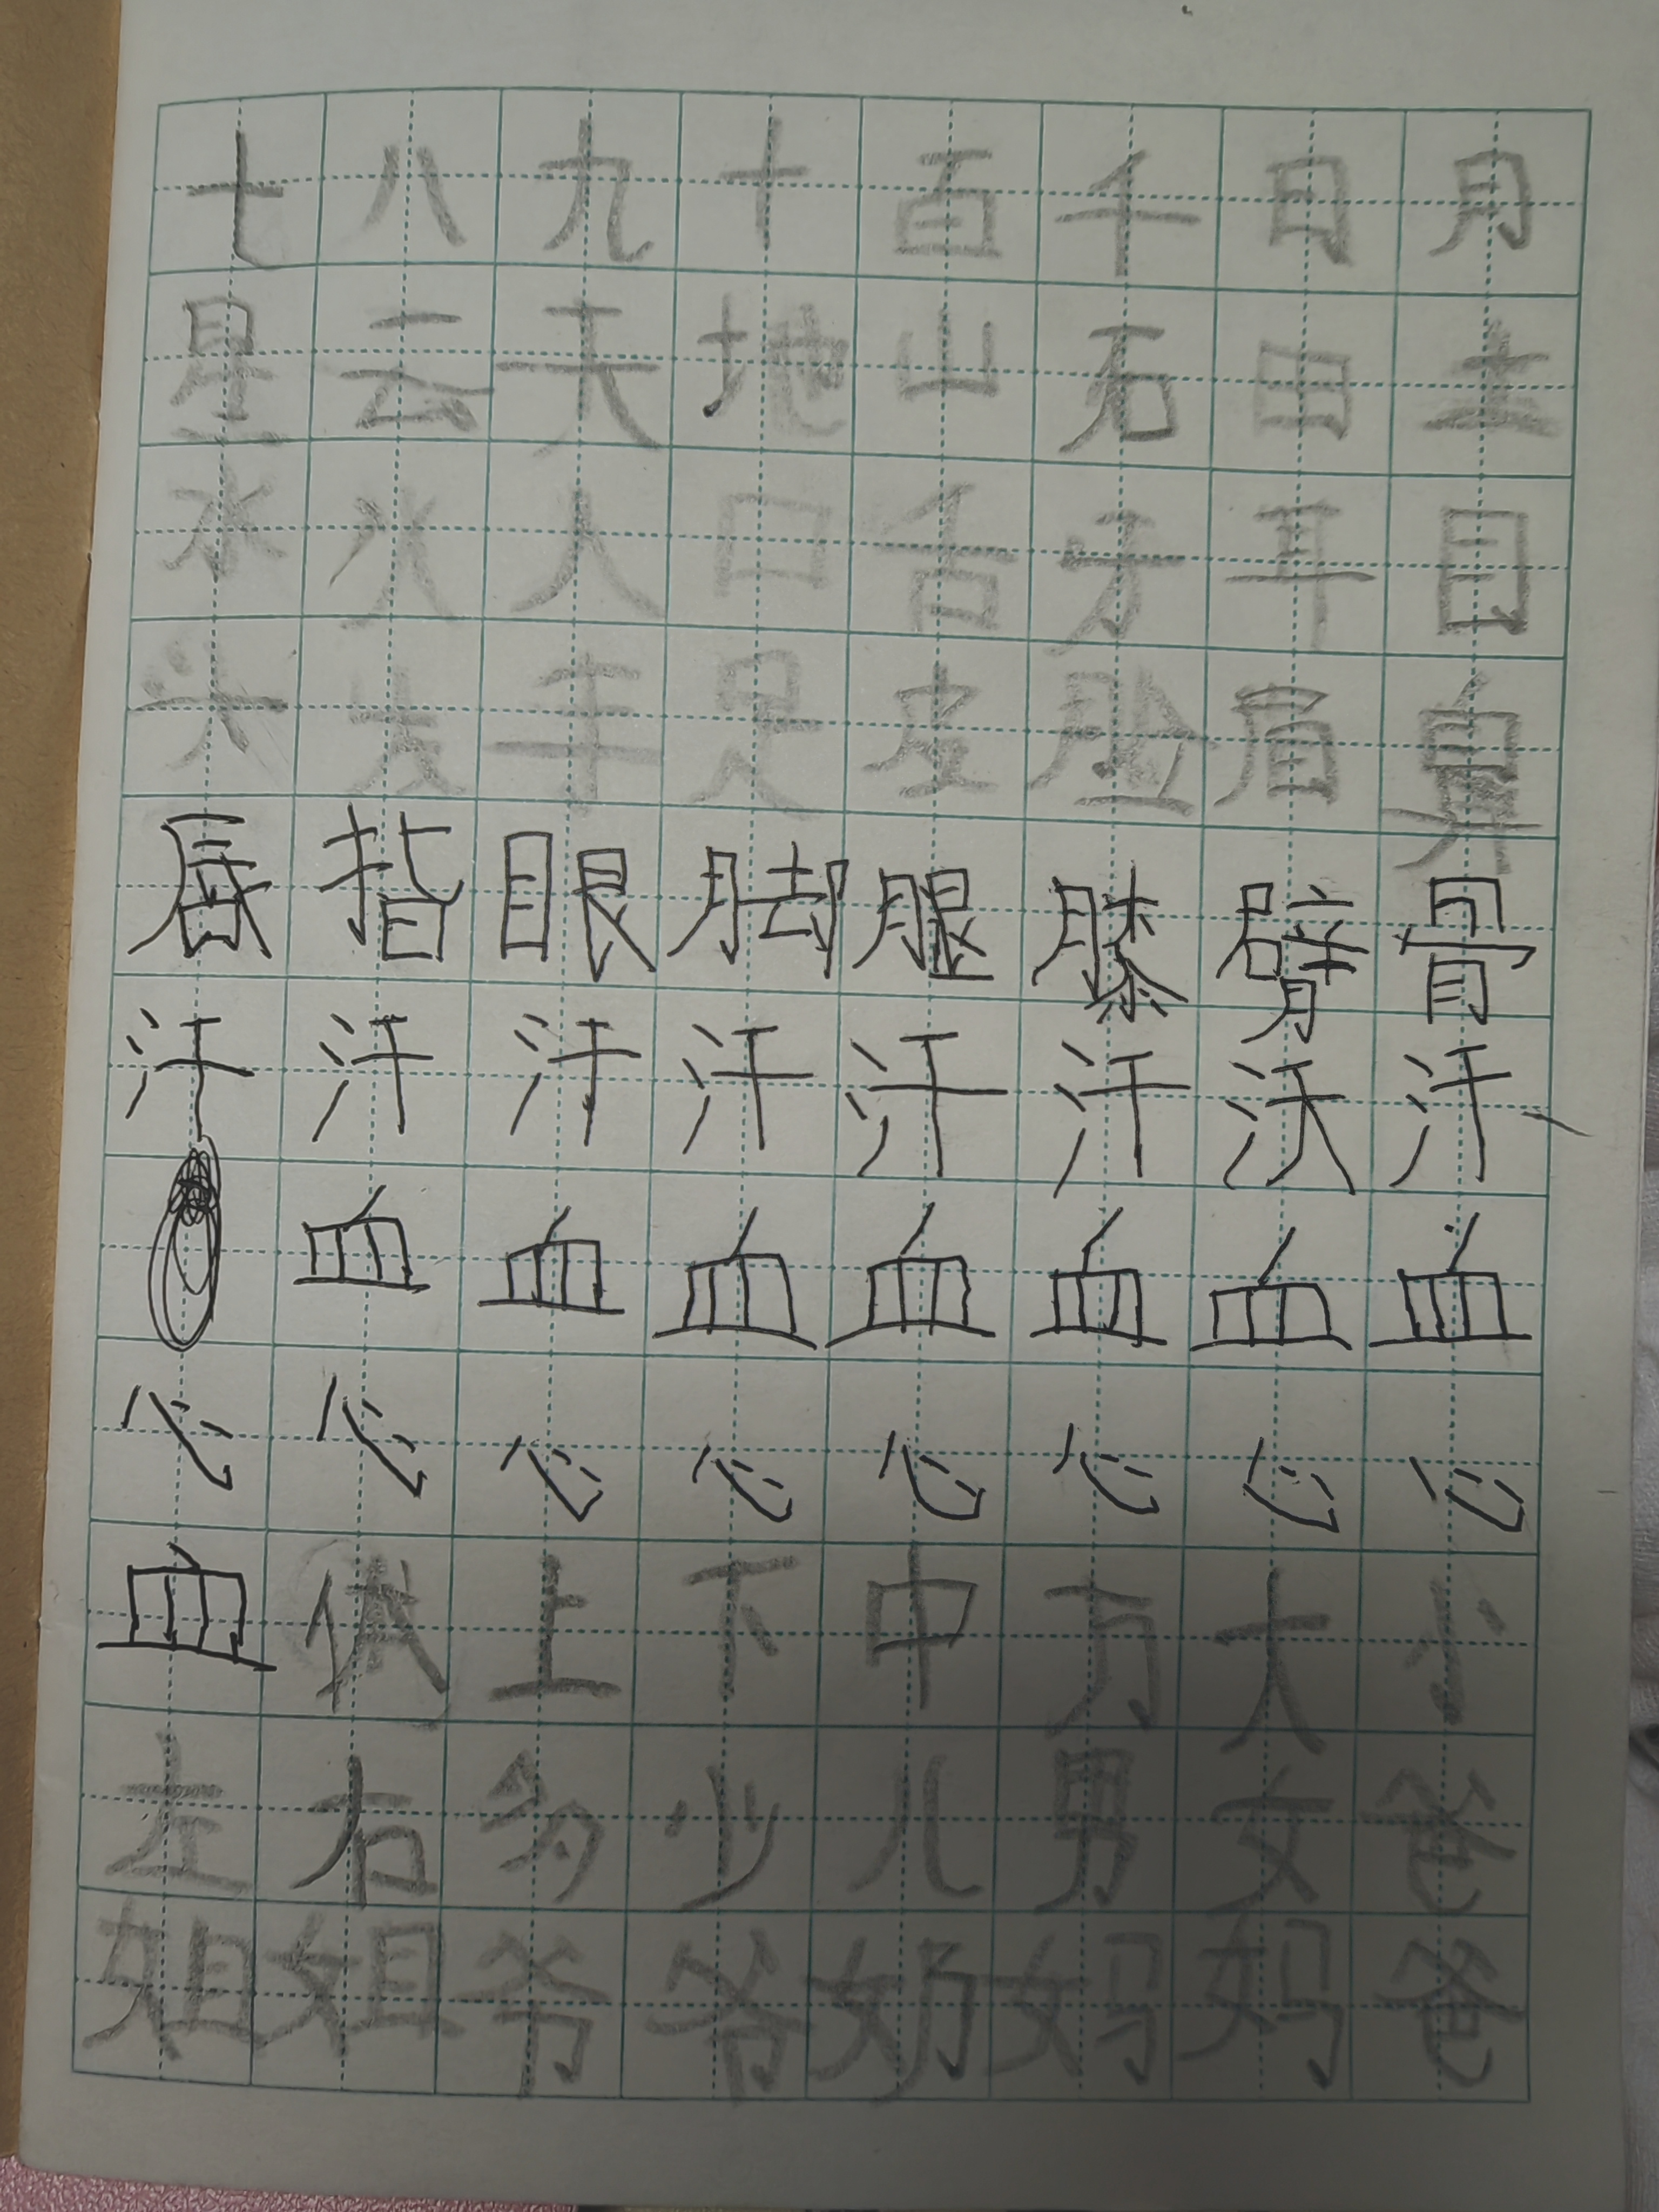 七八九十百千日月
星云天地山石田土
水火人口舌牙耳目
头发手足皮脸眉鼻
唇指眼脚腿膝臂骨
汗汗汗汗汗汗沃汗
血血血血血血血
心心心心心心心心
血体上下中方大小
左右多少儿男女爸
姐姐爷爷奶妈妈爸